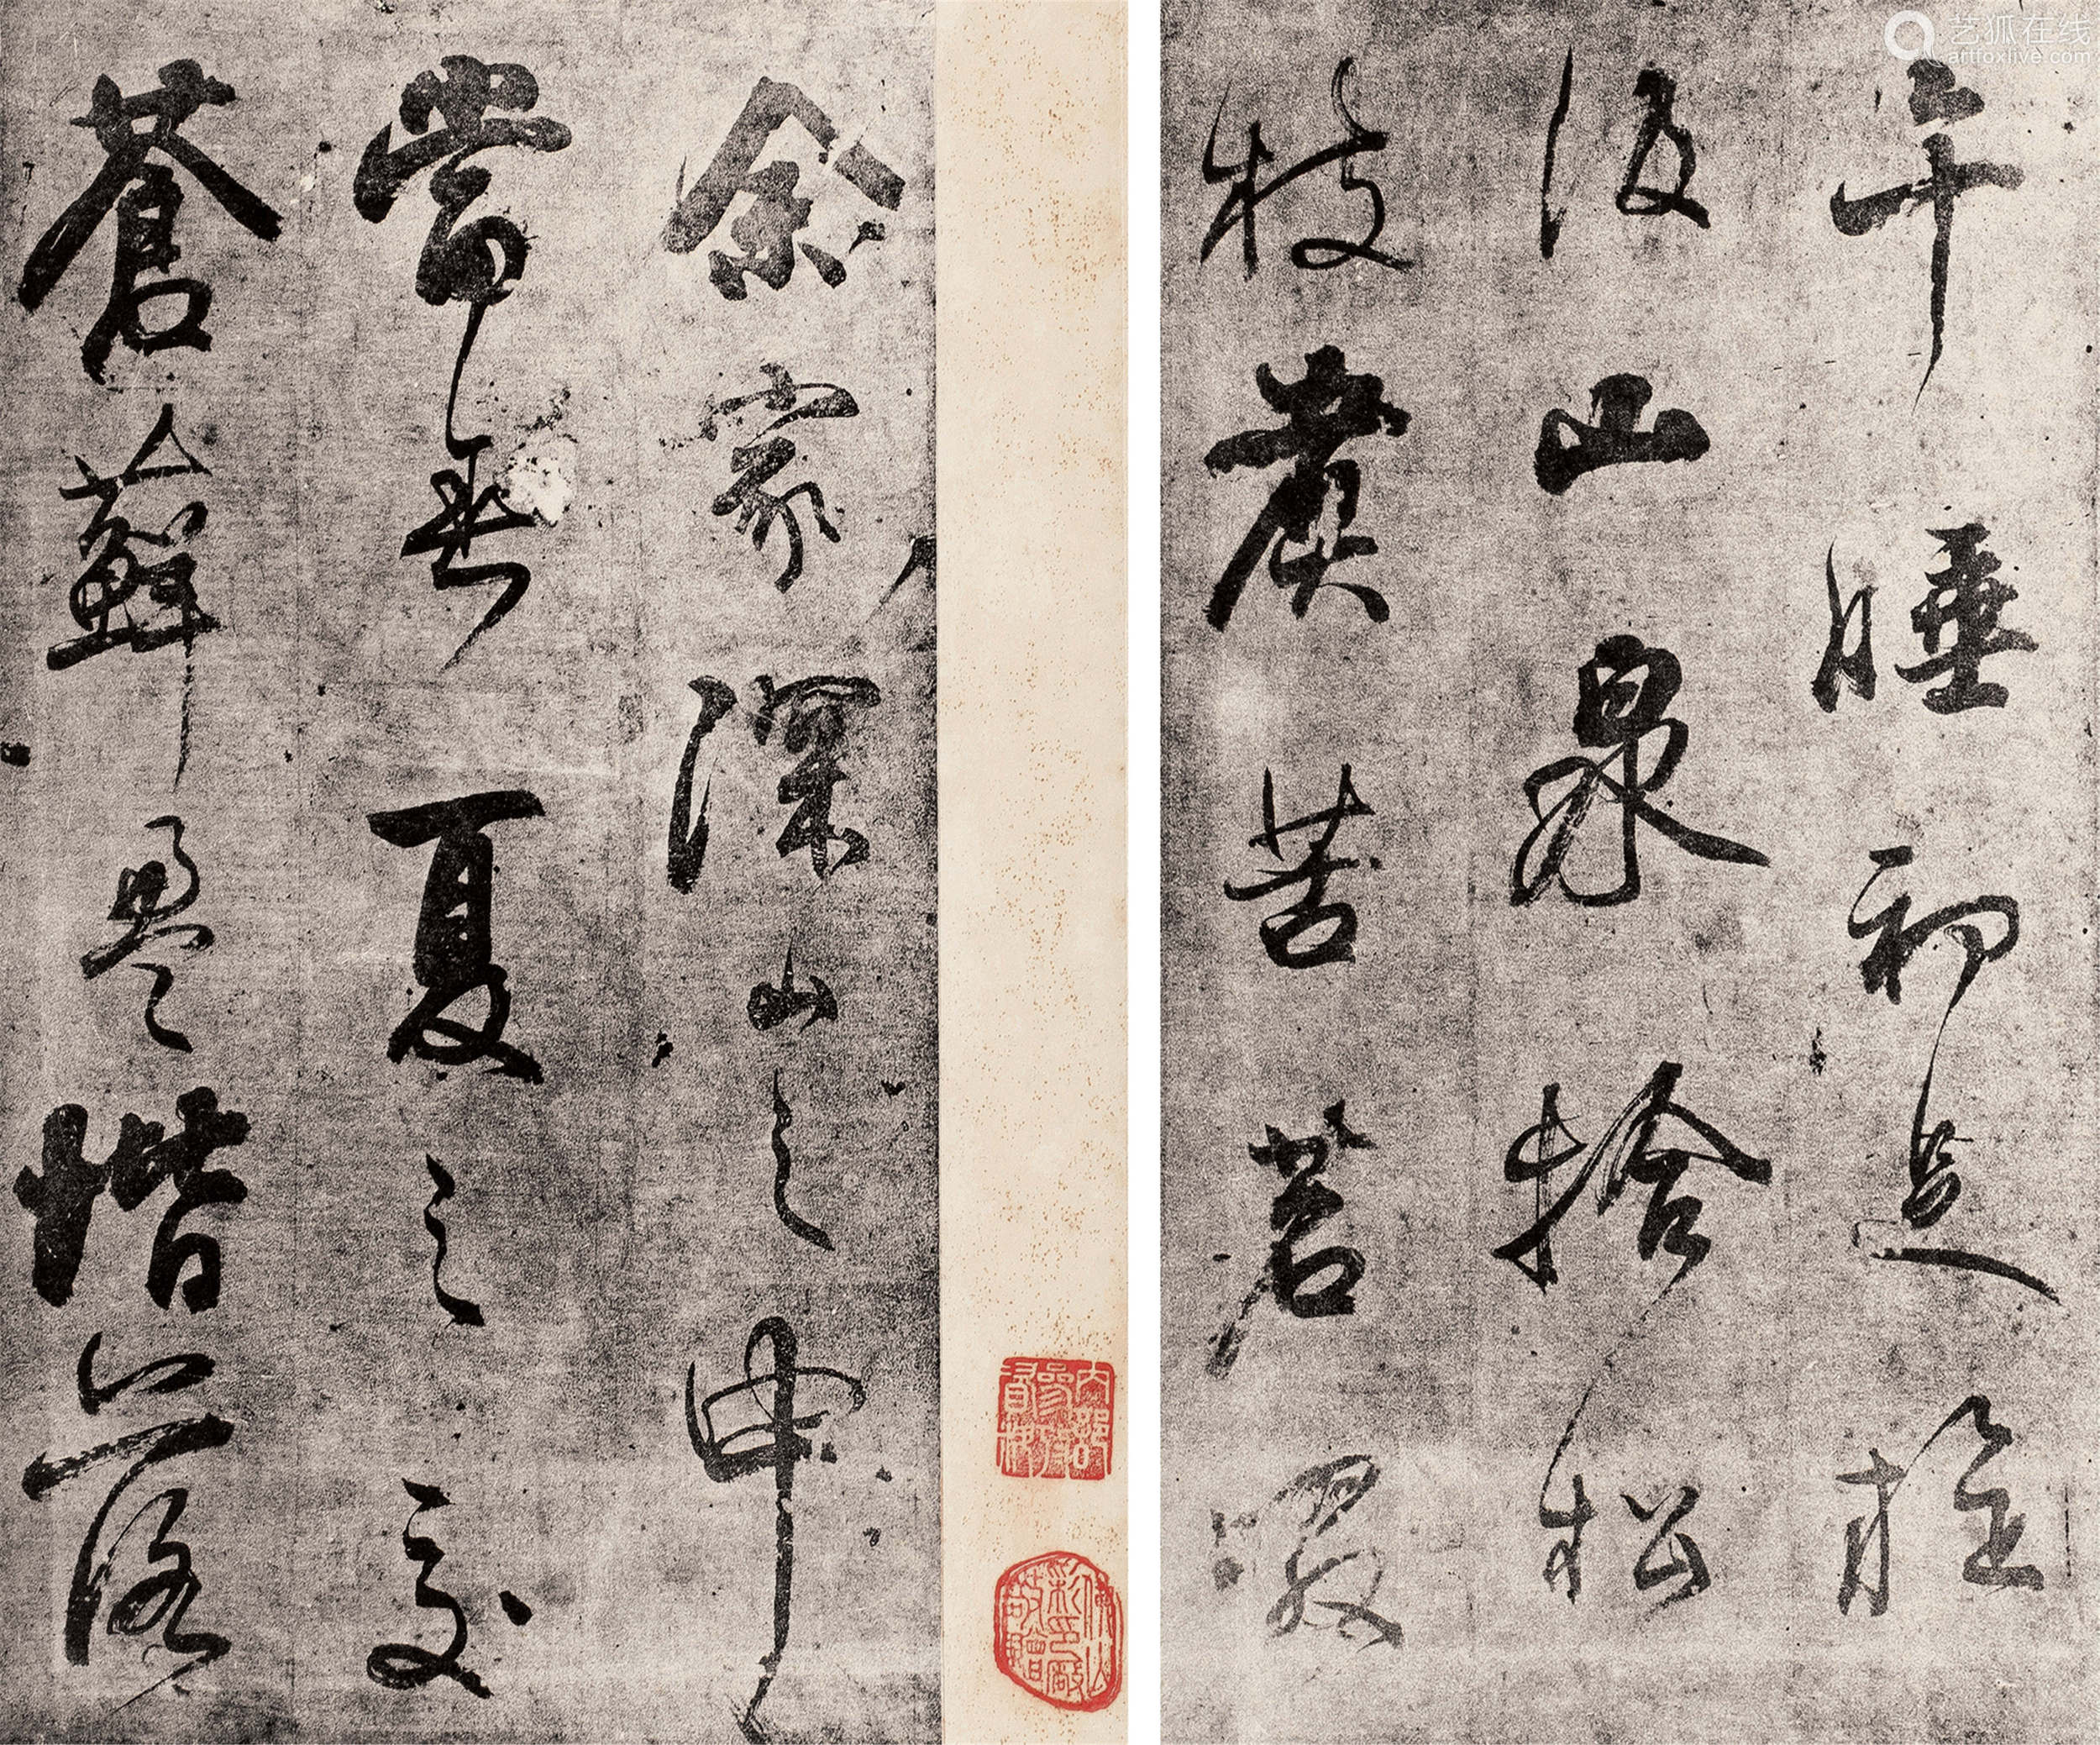 余家深山之中
常春夏之交
蒼蘚盈堦落
午睡初足旋
汲山泉拾松
枝煮苦茗啜
艺狐在线
artfoxlive.com